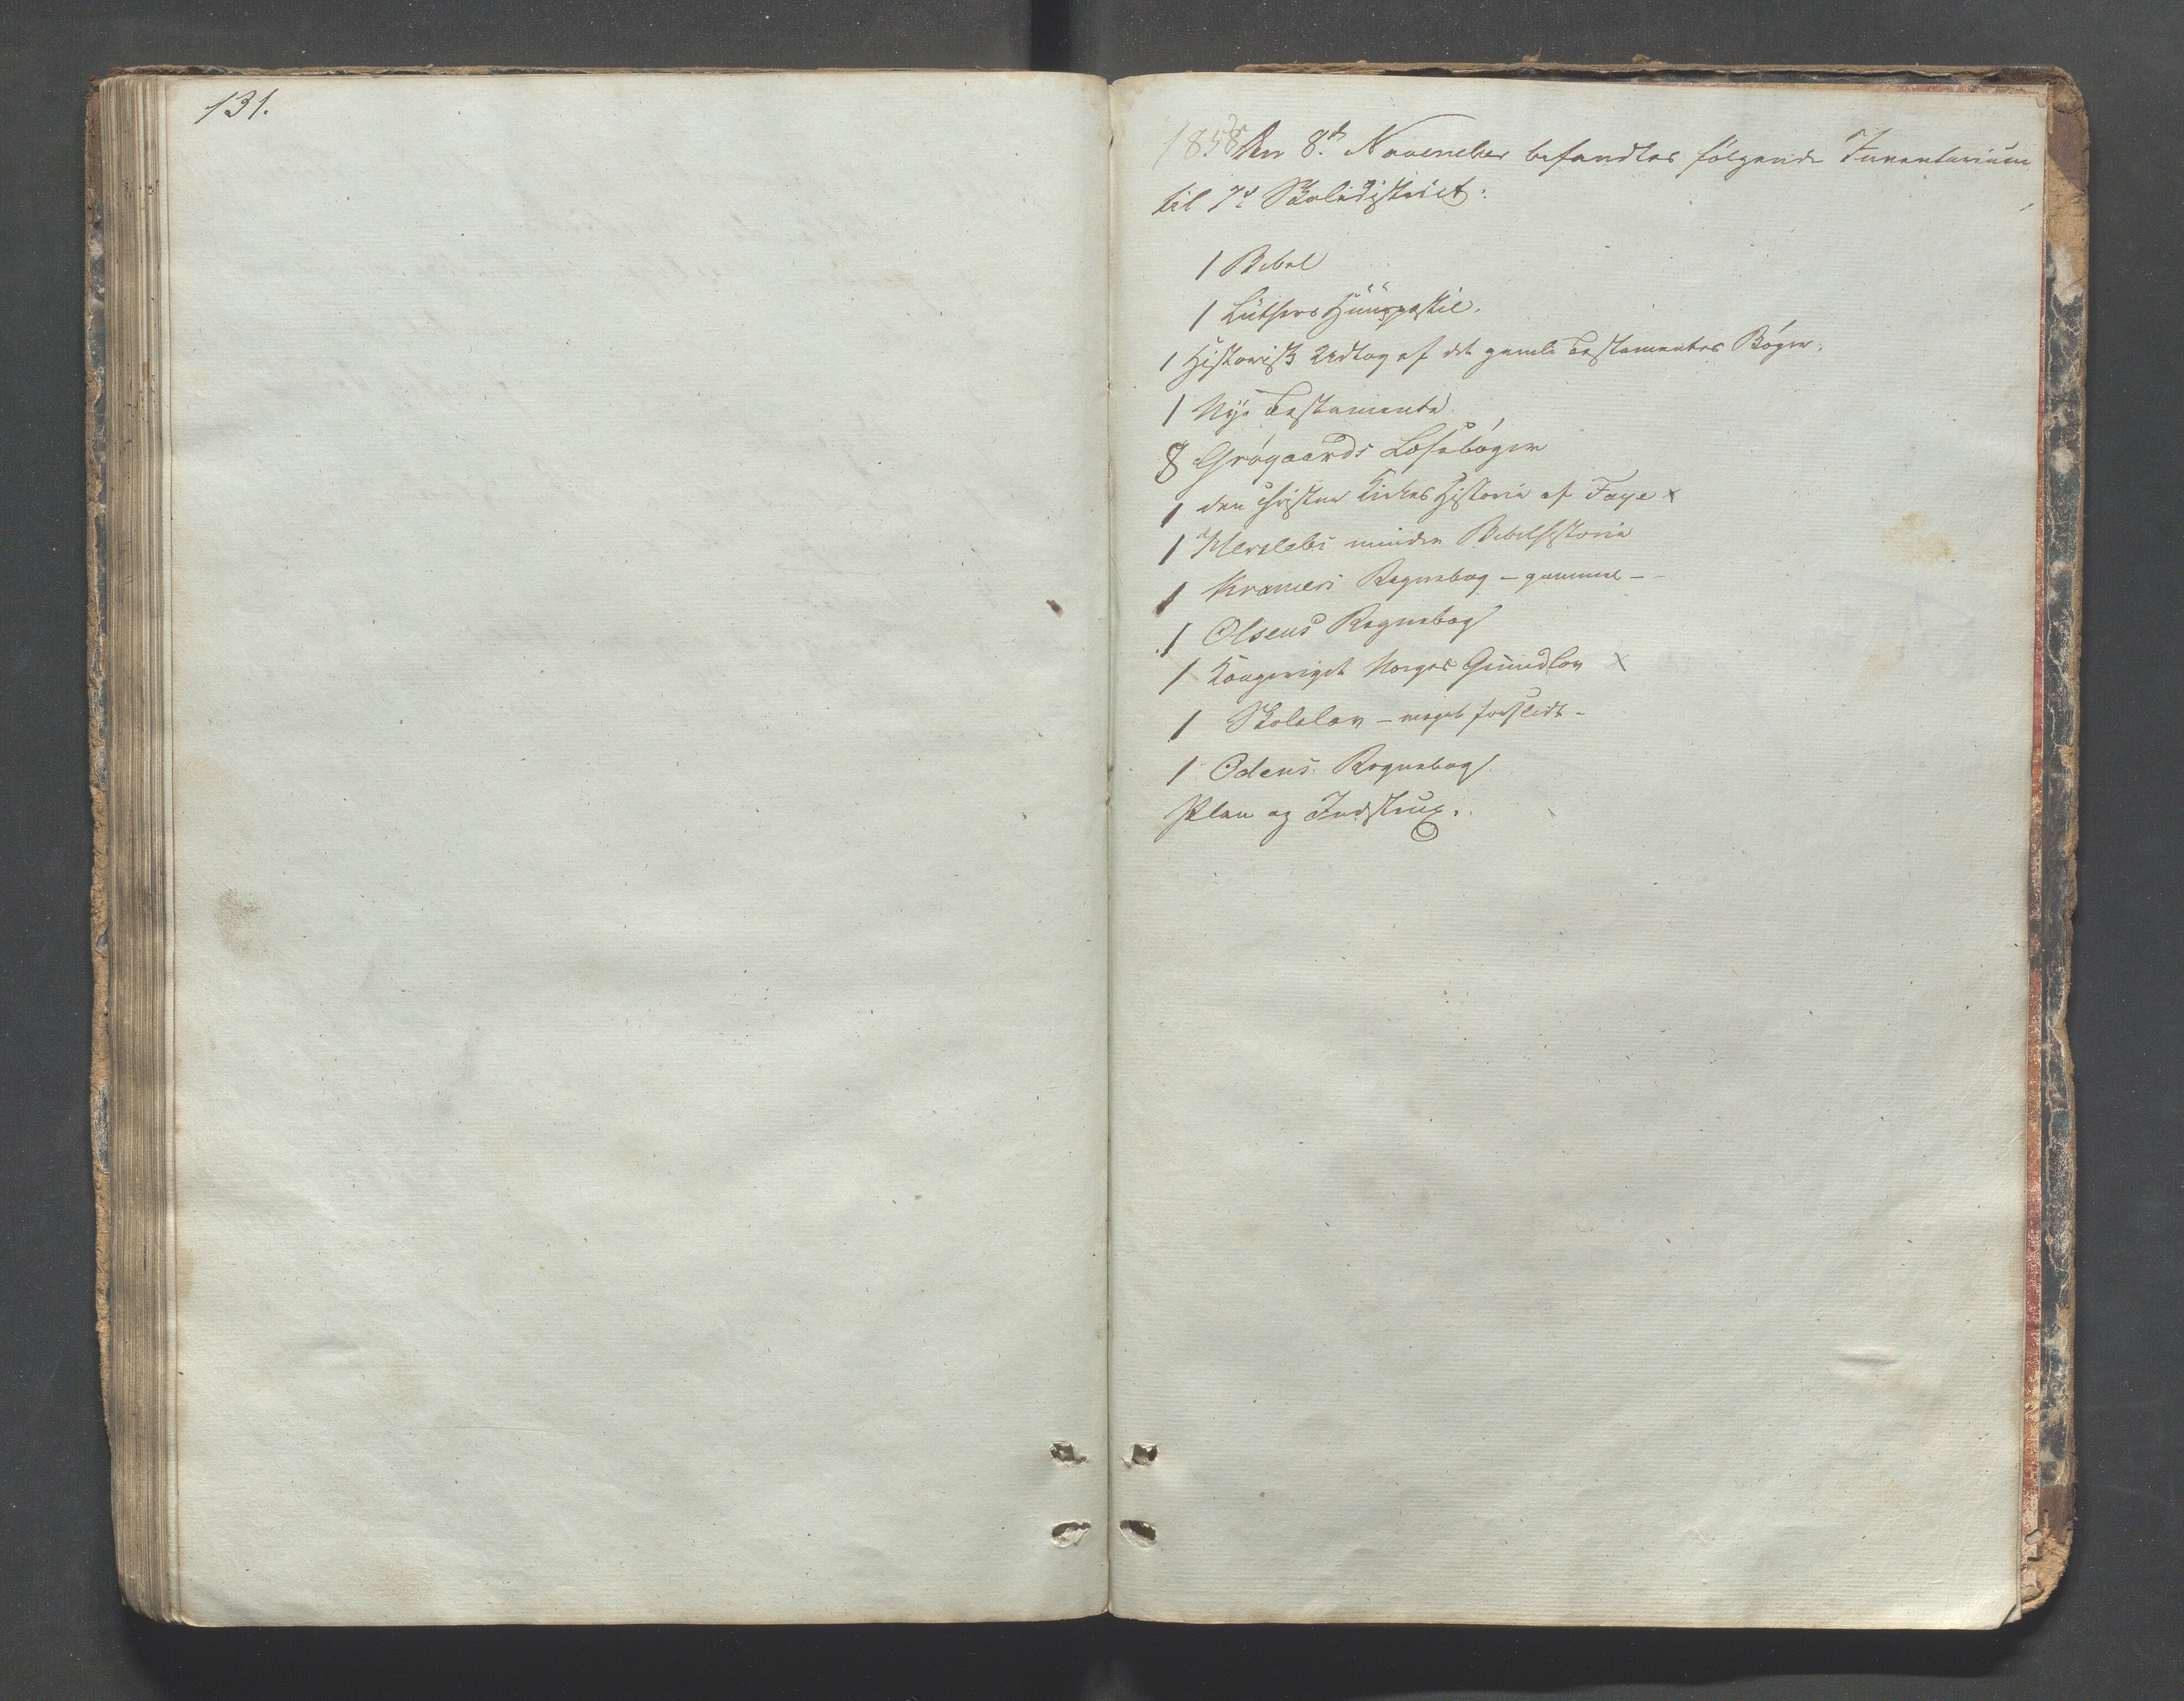 131.
1858 Den 8de November befandtes følgende Inventarium
til 7de Skoledistrict:
1 Bibel
1 Luthers Huuspostil.
1 Historisk Udtog af det gamle Testamentes Bøger.
1 Nye Testamente.
8 Grøgaards Læsebøger
1 den christne Kirkes Historie af Faye x
1 Herslebs mindre Bibelhistorie
1 Kramers Regnebog - gammel -
1 Olsens Regnebog
1 Kongeriget Norges Grundlov x
1 Skolelov - meget forslidt -
1 Odens Regnebog
Plan og Instrux.